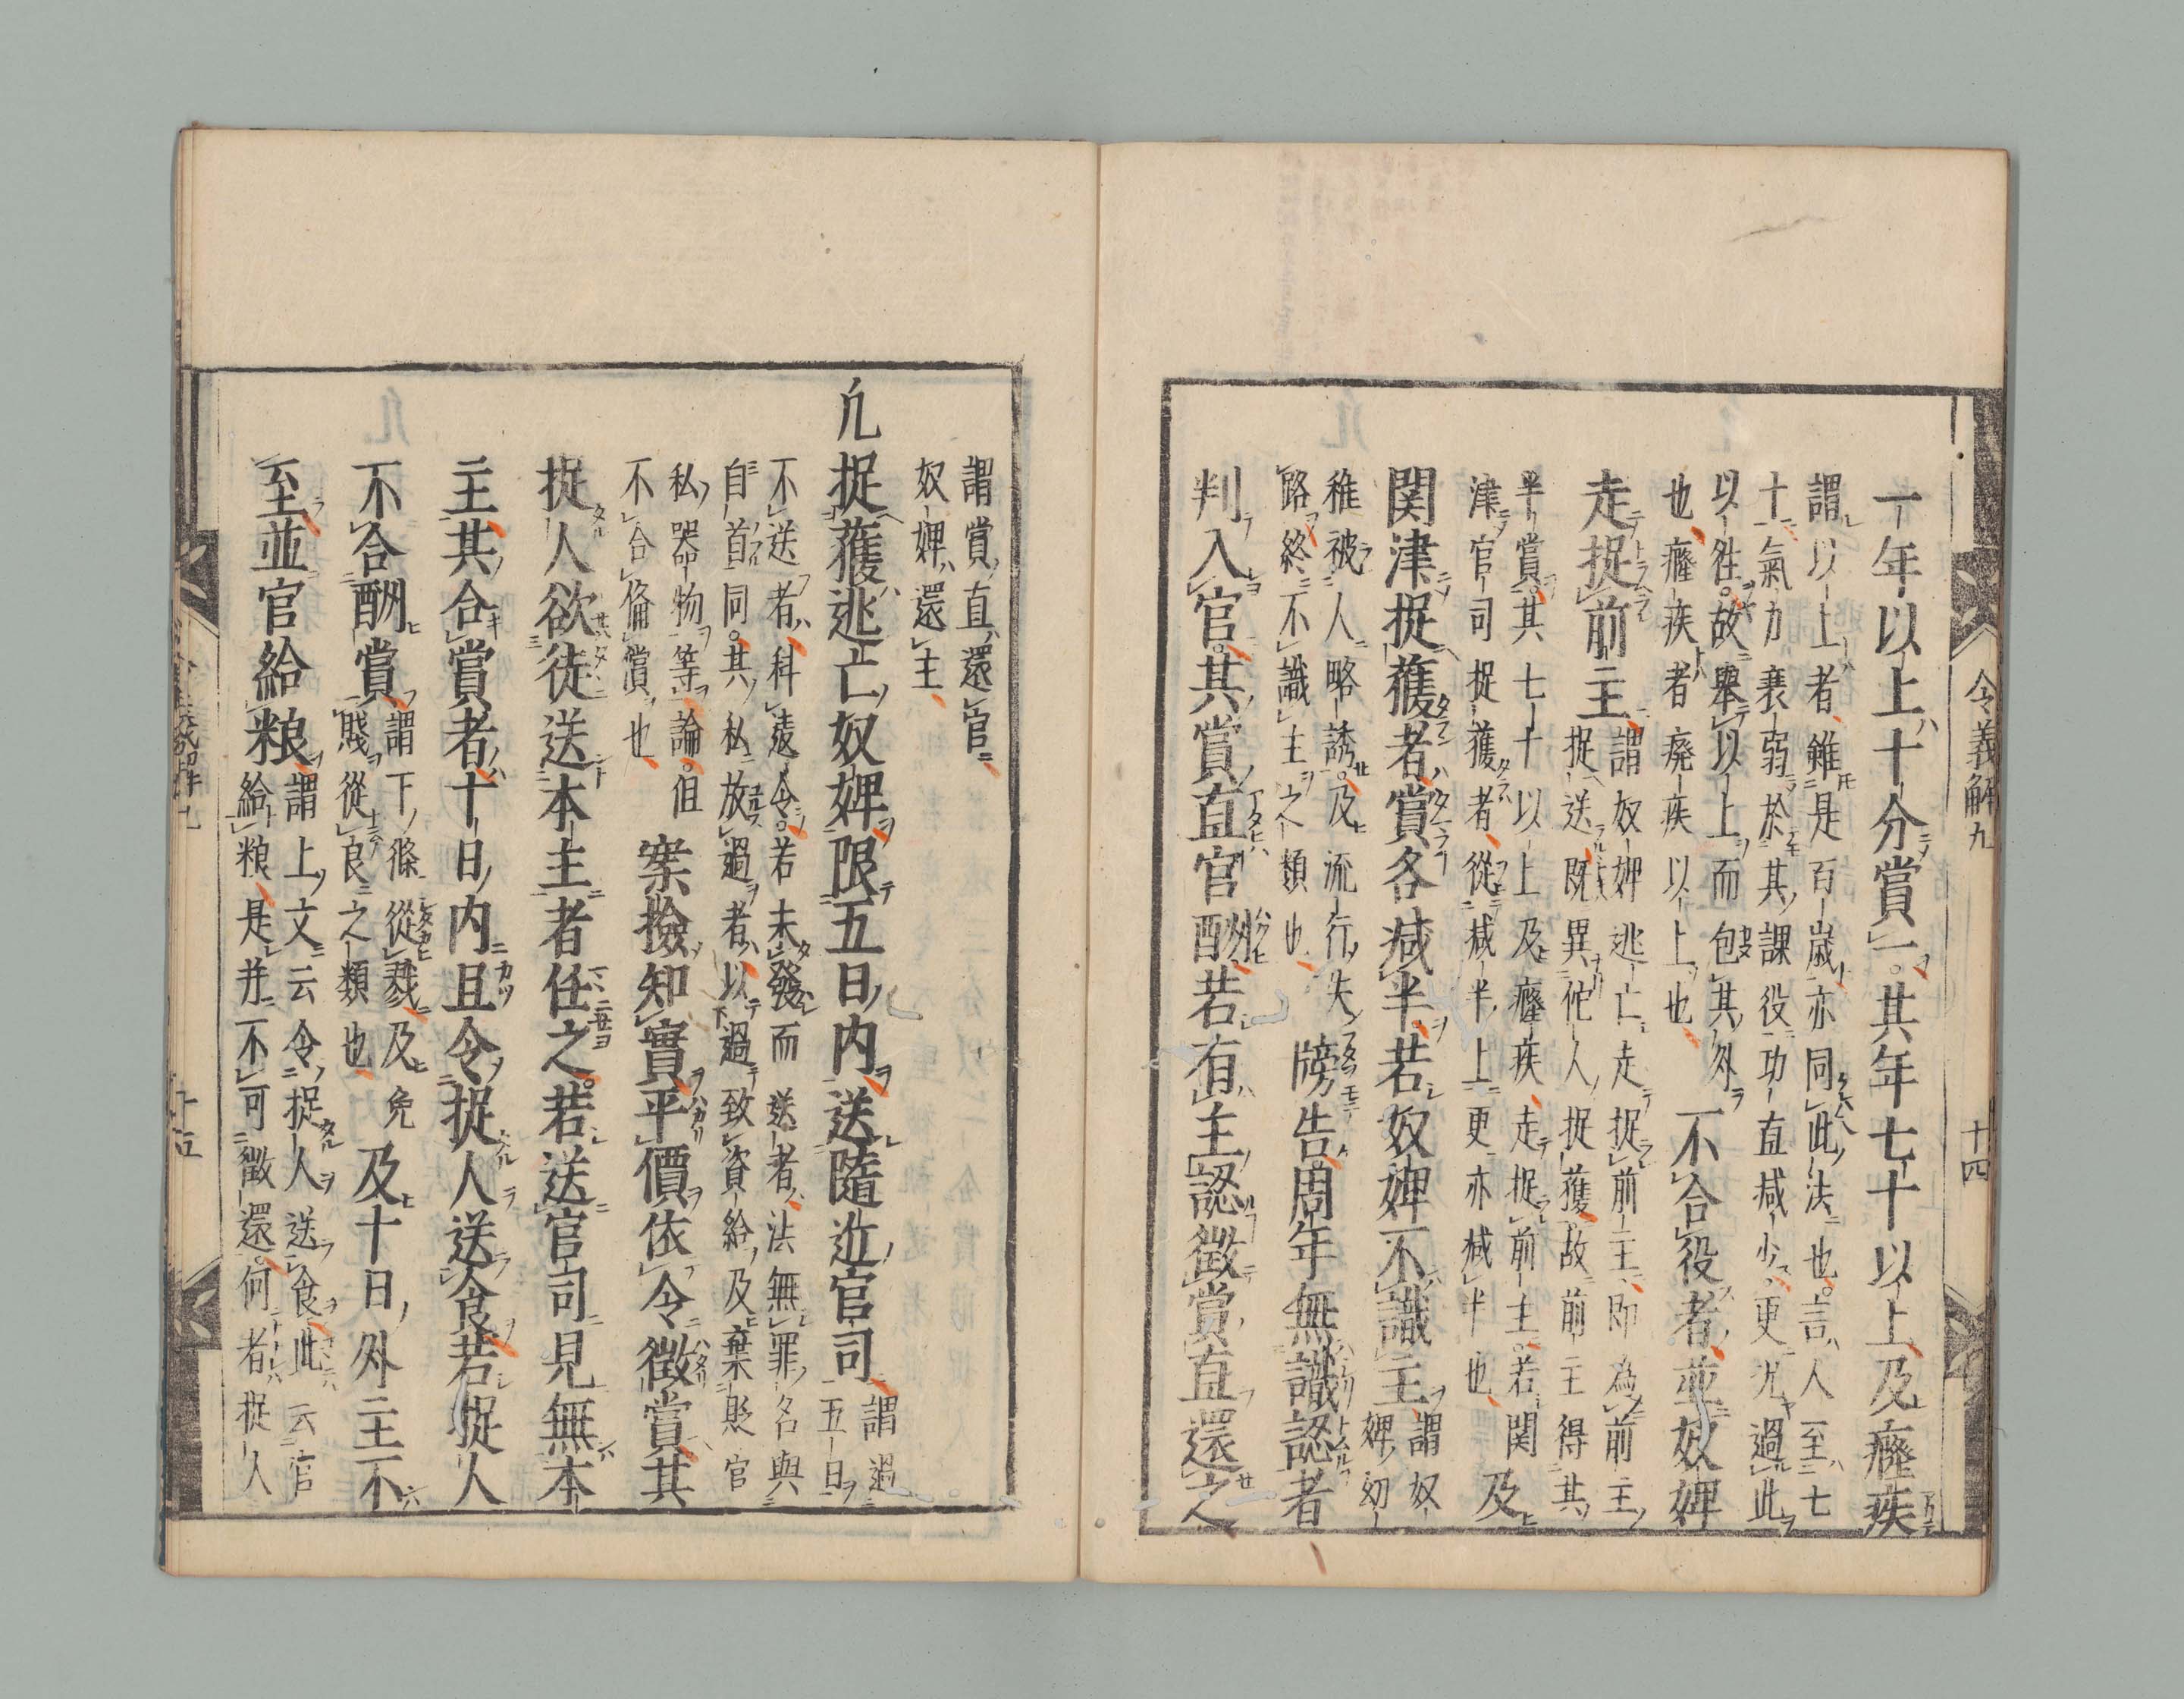 令義解九
十四
一年以上十分賞一。其年七十以上及癃疾
謂以上者雖是百歳亦同此法也。言人至七
十氣力衰弱於其課役功直减少更尤過此
以往。故舉以上而包其外
也癃疾者廢疾以上也
不合役者並奴婢
走捉前主
謂奴婢逃亡走捉前主即為前主
捉送既異佗人捉獲故前主得其
半賞。其七十以上及癃疾走捉前主。若関
津官司捉獲者從减半上更亦减半也
及
関津捉獲者賞各减半若奴婢不識主
謂奴
婢幼
稚被人略誘。及流行失
路終不識主之類也
牓告周年無識認者
判入官。其賞直官酬若有主認徵賞直還之
謂賞直還官
奴婢還主
凢捉獲逃亡奴婢限五日内送隨近官司
謂過
五日
不送者科違令。若未發而送者法無罪名與
自首同。其私放過者以過致資給及棄毀官
私器物等論。但
不合備償也
案撿知實平價依令徵賞其
捉人欲徒送本主者任之。若送官司見無本
主其合賞者十日内且令捉人送食若捉人
不合酬賞
謂下條從戮及免
賤從良之類也
及十日外主不
至並官給粮
謂上文云令捉人送食此云官
給粮是并不可徵還。何者捉人
十五